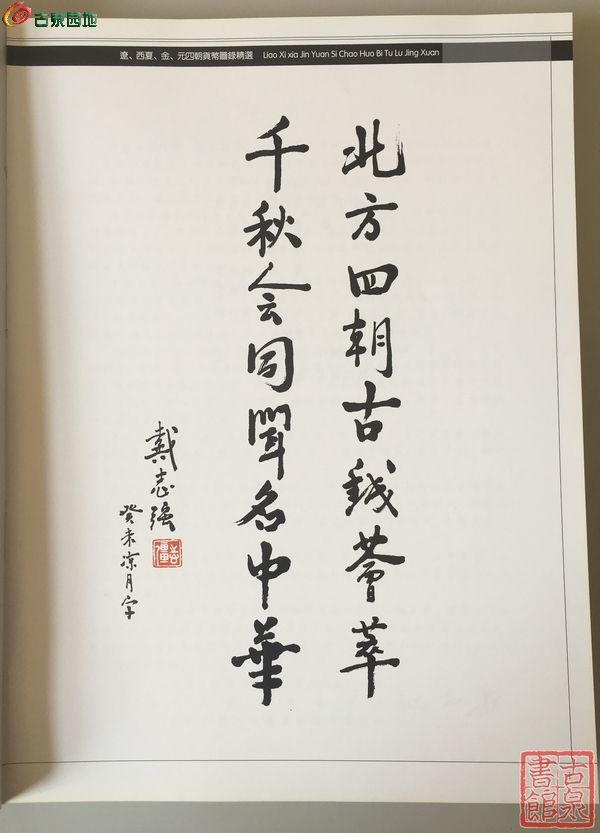 古泉园地
遼、西夏、金、元四朝貨幣圖錄精選 Liao Xi xia Jin Yuan Si Chao Huo Bi Tu Lu Jing Xuan
北方四朝古銭薈萃
千秋会同聞名中華
戴志强
癸未凉月字
古泉
書館